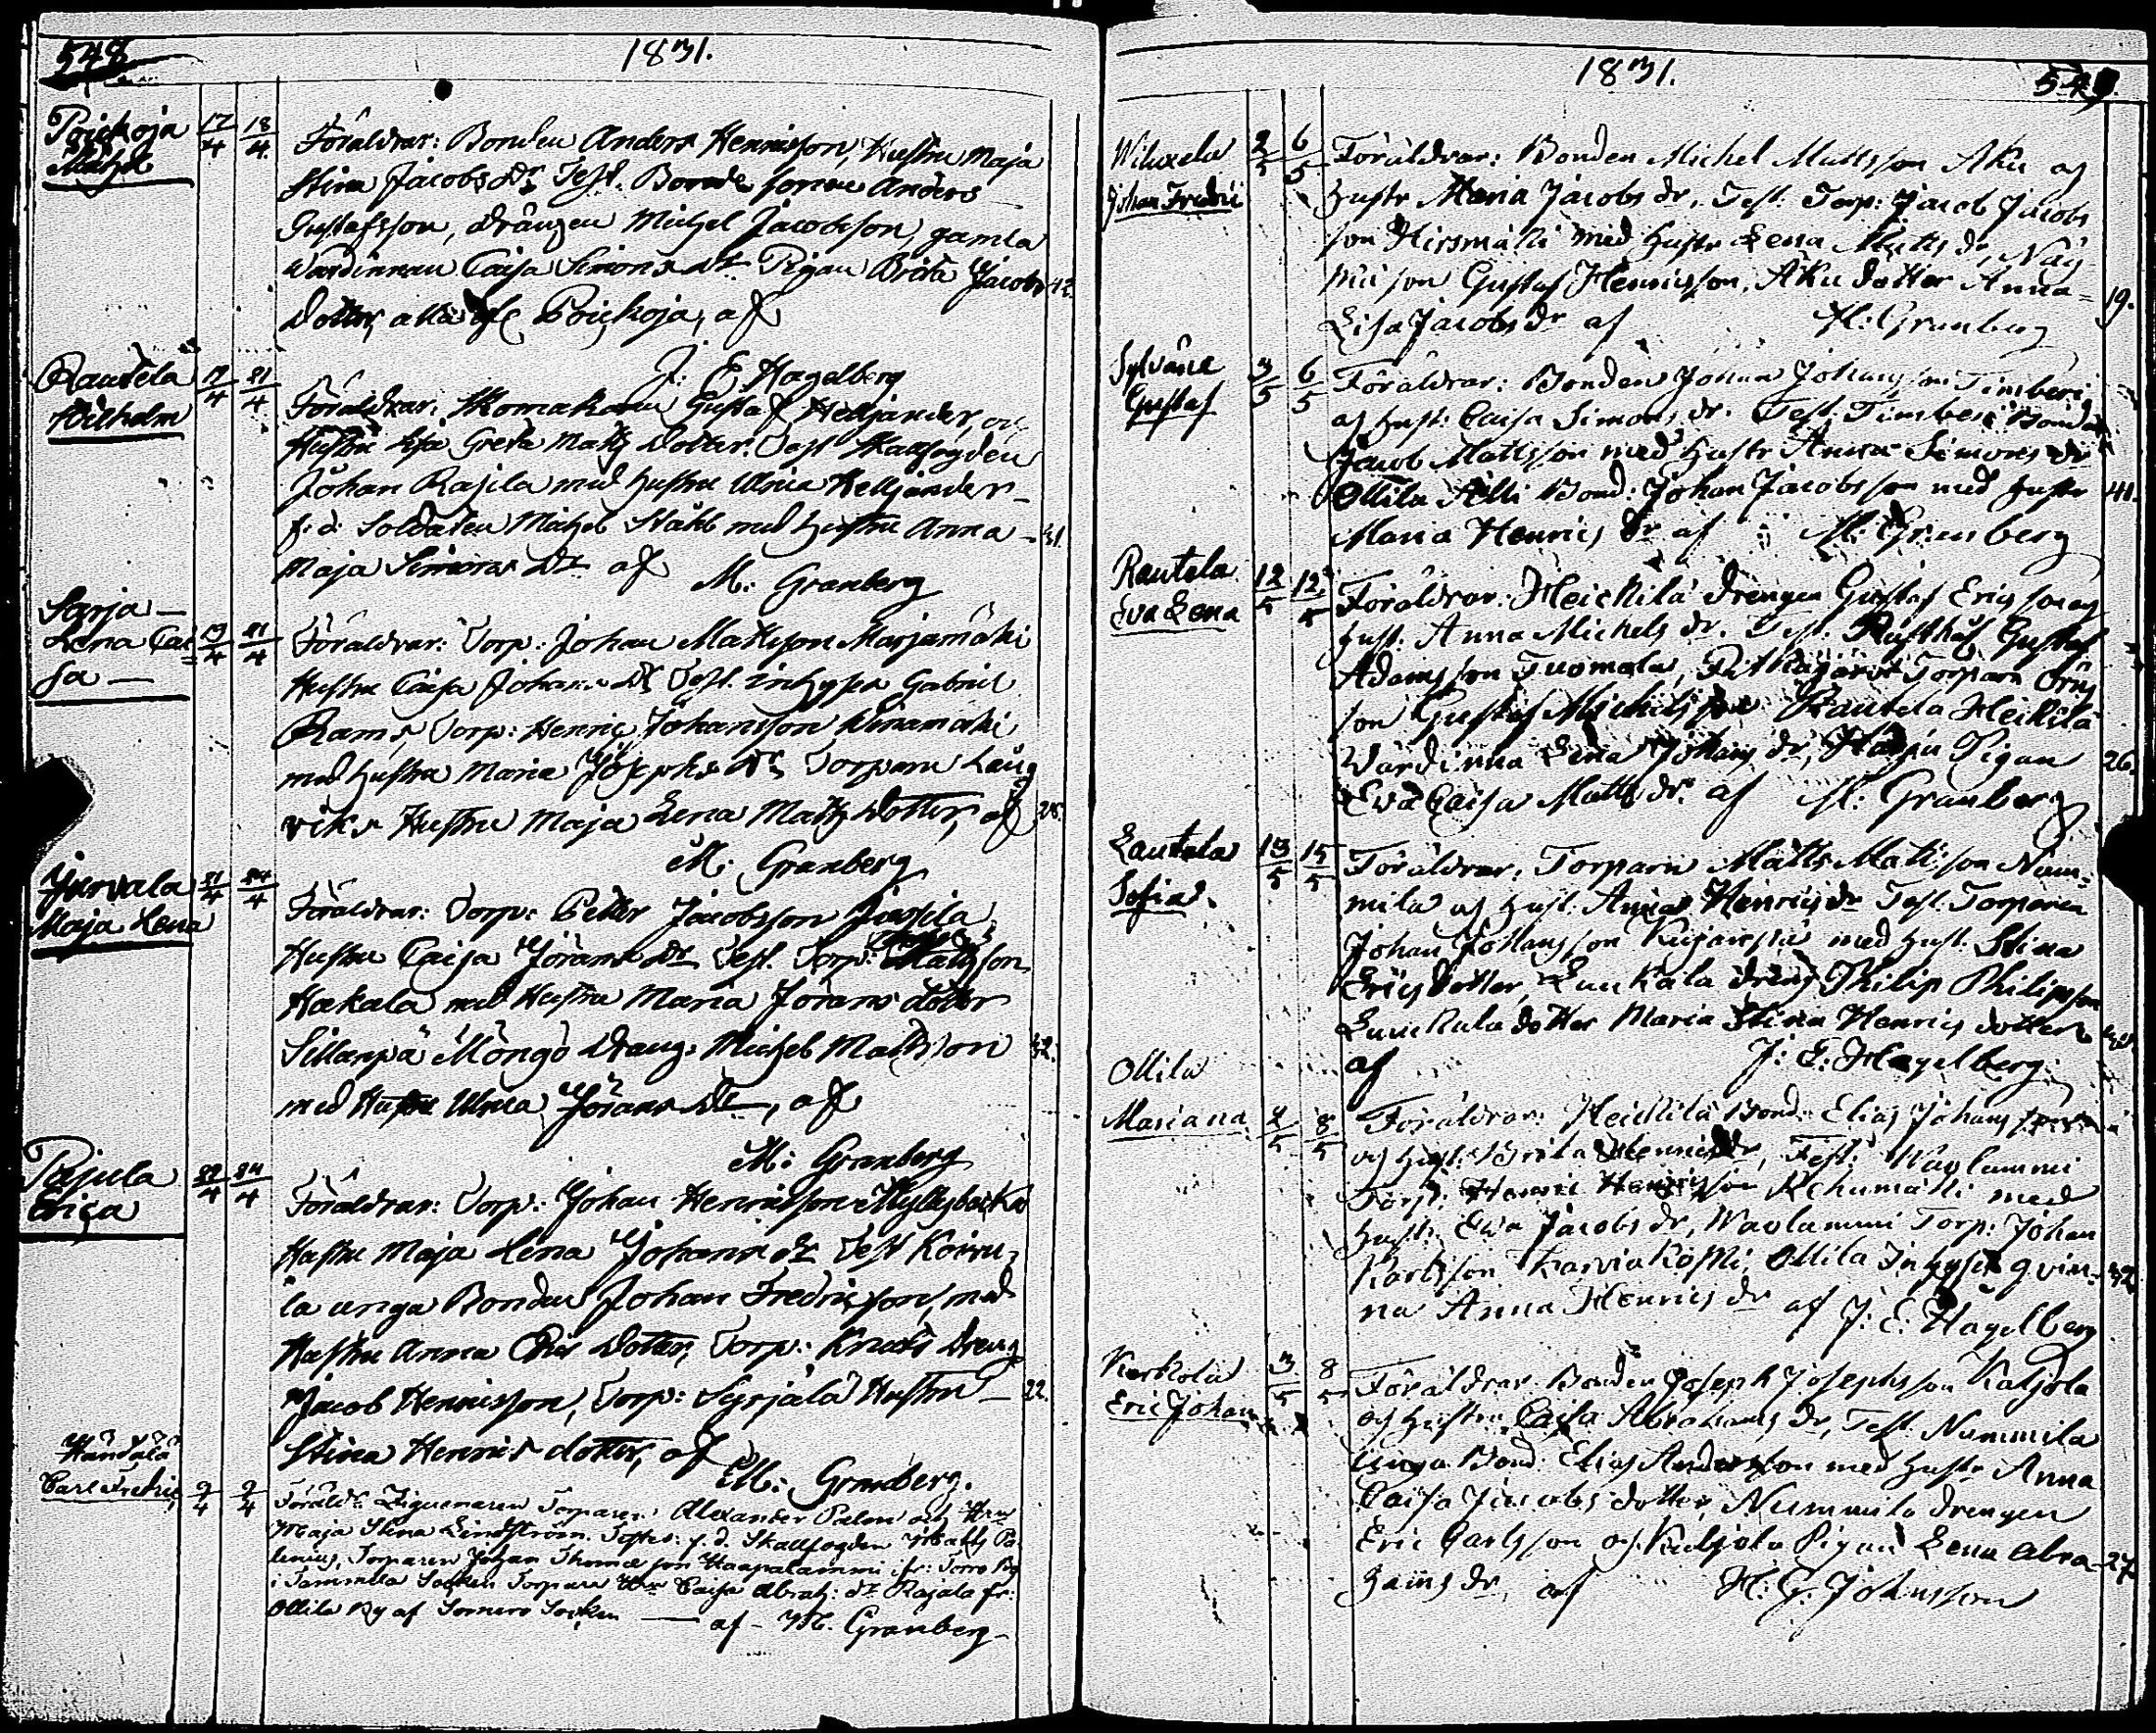 548
1831.
Poickoja
Michel
17/4 18/4
Föräldrar: Bonden Anders Henricsson, Hustru Maja
Stina Jacobs Dr Test. Bonde sonen Anders
Gustafsson, drängen Michel Jacobsson, gamla
Wärdinnan Caisa Simons Dr Pigan Brita Jacobs 42.
Dotter, alla af Poickoja, af
J: E Hagelberg
Rautela
Wilhelm
17/4 21/4
Föräldrar: Skomakaren Gustaf Helljander, och
Hustru Lisa Greta Matts Dotter. Test Skallfogden
Johan Rajila med hustru Ulrica Helljander
f: d: Soldaten Michel Ståhl med hustru Anna 31.
Maja Simons Dr af M: Granberg
Sarja
Lena Cai
sa
19/4 21/4
Föräldrar: Torp: Johan Mattsson Marjamäki
Hustru Caisa Johans Dr Test. inhyses Gabriel
Ram, Torp: Henric Johansson
med hustru Maria Josephs Dr Torparn Lång
viks Hustru Maja Lena Matts Dotter, af 28.
M: Granberg
Jurvala
Maja Lena
21/4 24/4
Föräldrar: Torp: Petter Jacobsson Jussila
Hustru Caisa Jörans Dr Test. Torp: Mattsson
Hakala med Hustru Maria Jörans dotter
Sillanpä Möngö Dräng: Michel Mattsson 32.
med Hustru Ulrica Jörans Dr, af
M: Granberg
Pajula
Erica
22/4 24/4
Föräldrar: Torp: Johan Henricsson Myllybacka
Hustru Maja Lena Johans Dr Test Koivu
la unga Bonden Johan Fredricsson, med
Hustru Anna Eric Dotter, Torp: Knuts Dreng
Jacob Henricsson, Torp: Syrjälä Hustru 22.
Stina Henrics dotter, af
M: Granberg.
Händälä
Carl Fredric
9/4 9/4
Föräldr: Ziguenaren Torparen Alexander Palm och Hru
Maja Stina Lindström. Testes: f. d. Skallfogden Matts Pa
lenius, Torparen Johan Thomasson Haapalammi ifr: Torro By
i Tammela Socken Torpare Hru Caisa Abrah: dr Rajala fr:
Ollila By af Somero Socken — af M. Granberg
1831.
549.
Wiluxela
Johan Fredric
2/5 6/5
Föräldrar: Bonden Michel Mattsson Aku og
hustr Maria Jacobs dr. Test: Torp: Jacob Jacobs
son Hirsmäki med hustr Lena Matts dr, Näy
Gustaf Henricsson, Aku dotter Anna 19.
Lisa Jacobs dr af M: Granberg
Sylväne
Gustaf
3/5 6/5
Föräldrar: Bonden Johan Johansson Timberi
og hust: Caisa Simons dr. Test. Timberi Bonde
Jacob Mattsson med hustr Anna Simons dr
Ollila Bond: Johan Jacobsson med hustr 41.
Maria Henrics dr af M: Granberg
Rautela
Eva Lena
12/5 12/5
Föräldrar: Heickilä drengen Gustaf Ericsson og
hust: Anna Michels dr. Test: Rusthål: Gustaf
Adamsson Tuomola, Torparn
son Gustaf Michelsson Rautela Heikkilä
Wärdinna Lena Johans dr, Pigan 26.
Eva Caisa Matts dr. af M: Granberg
Lautela
Sofia.
13/5 15/5
Föräldrar: Torparn Matts Mattsson Num-
mila og hust. Anna Henrics dr Test. Torparen
Johan Johansson med hust. Stina
Erics dotter, Luukala dreng Philip Philipsson
Luuckala dotter Maria Stina Henrics dotter
af J: E: Hagelberg.
Ollila
Mariana
2/5 8/5
Föräldrar: Heickilä Bond: Elias Johansson
og hust: Brita Henrics dr, Test: Wavlammi
Torp: Henric Henricsson med
hust: Eva Jacobs dr, Wavlammi Torp: Johan
Karlsson Karviakoski, Ollila Inhyses qvin- 32.
na Anna Henrics dr af J: E: Hagelberg
Kerkola
Eric Johan
3/5 8/5
Föräldrar: Bonden Joseph Josephsson Katjola
og hustru Caisa Abrahams dr, Test. Nummila
unga Bond: Elias Andersson med hustr Anna
Caisa Jacobs dotter, Nummila drengen
Eric Carlsson og Katjola Pigan Lena Abra- 27.
hams dr, af H: G: Johnsson